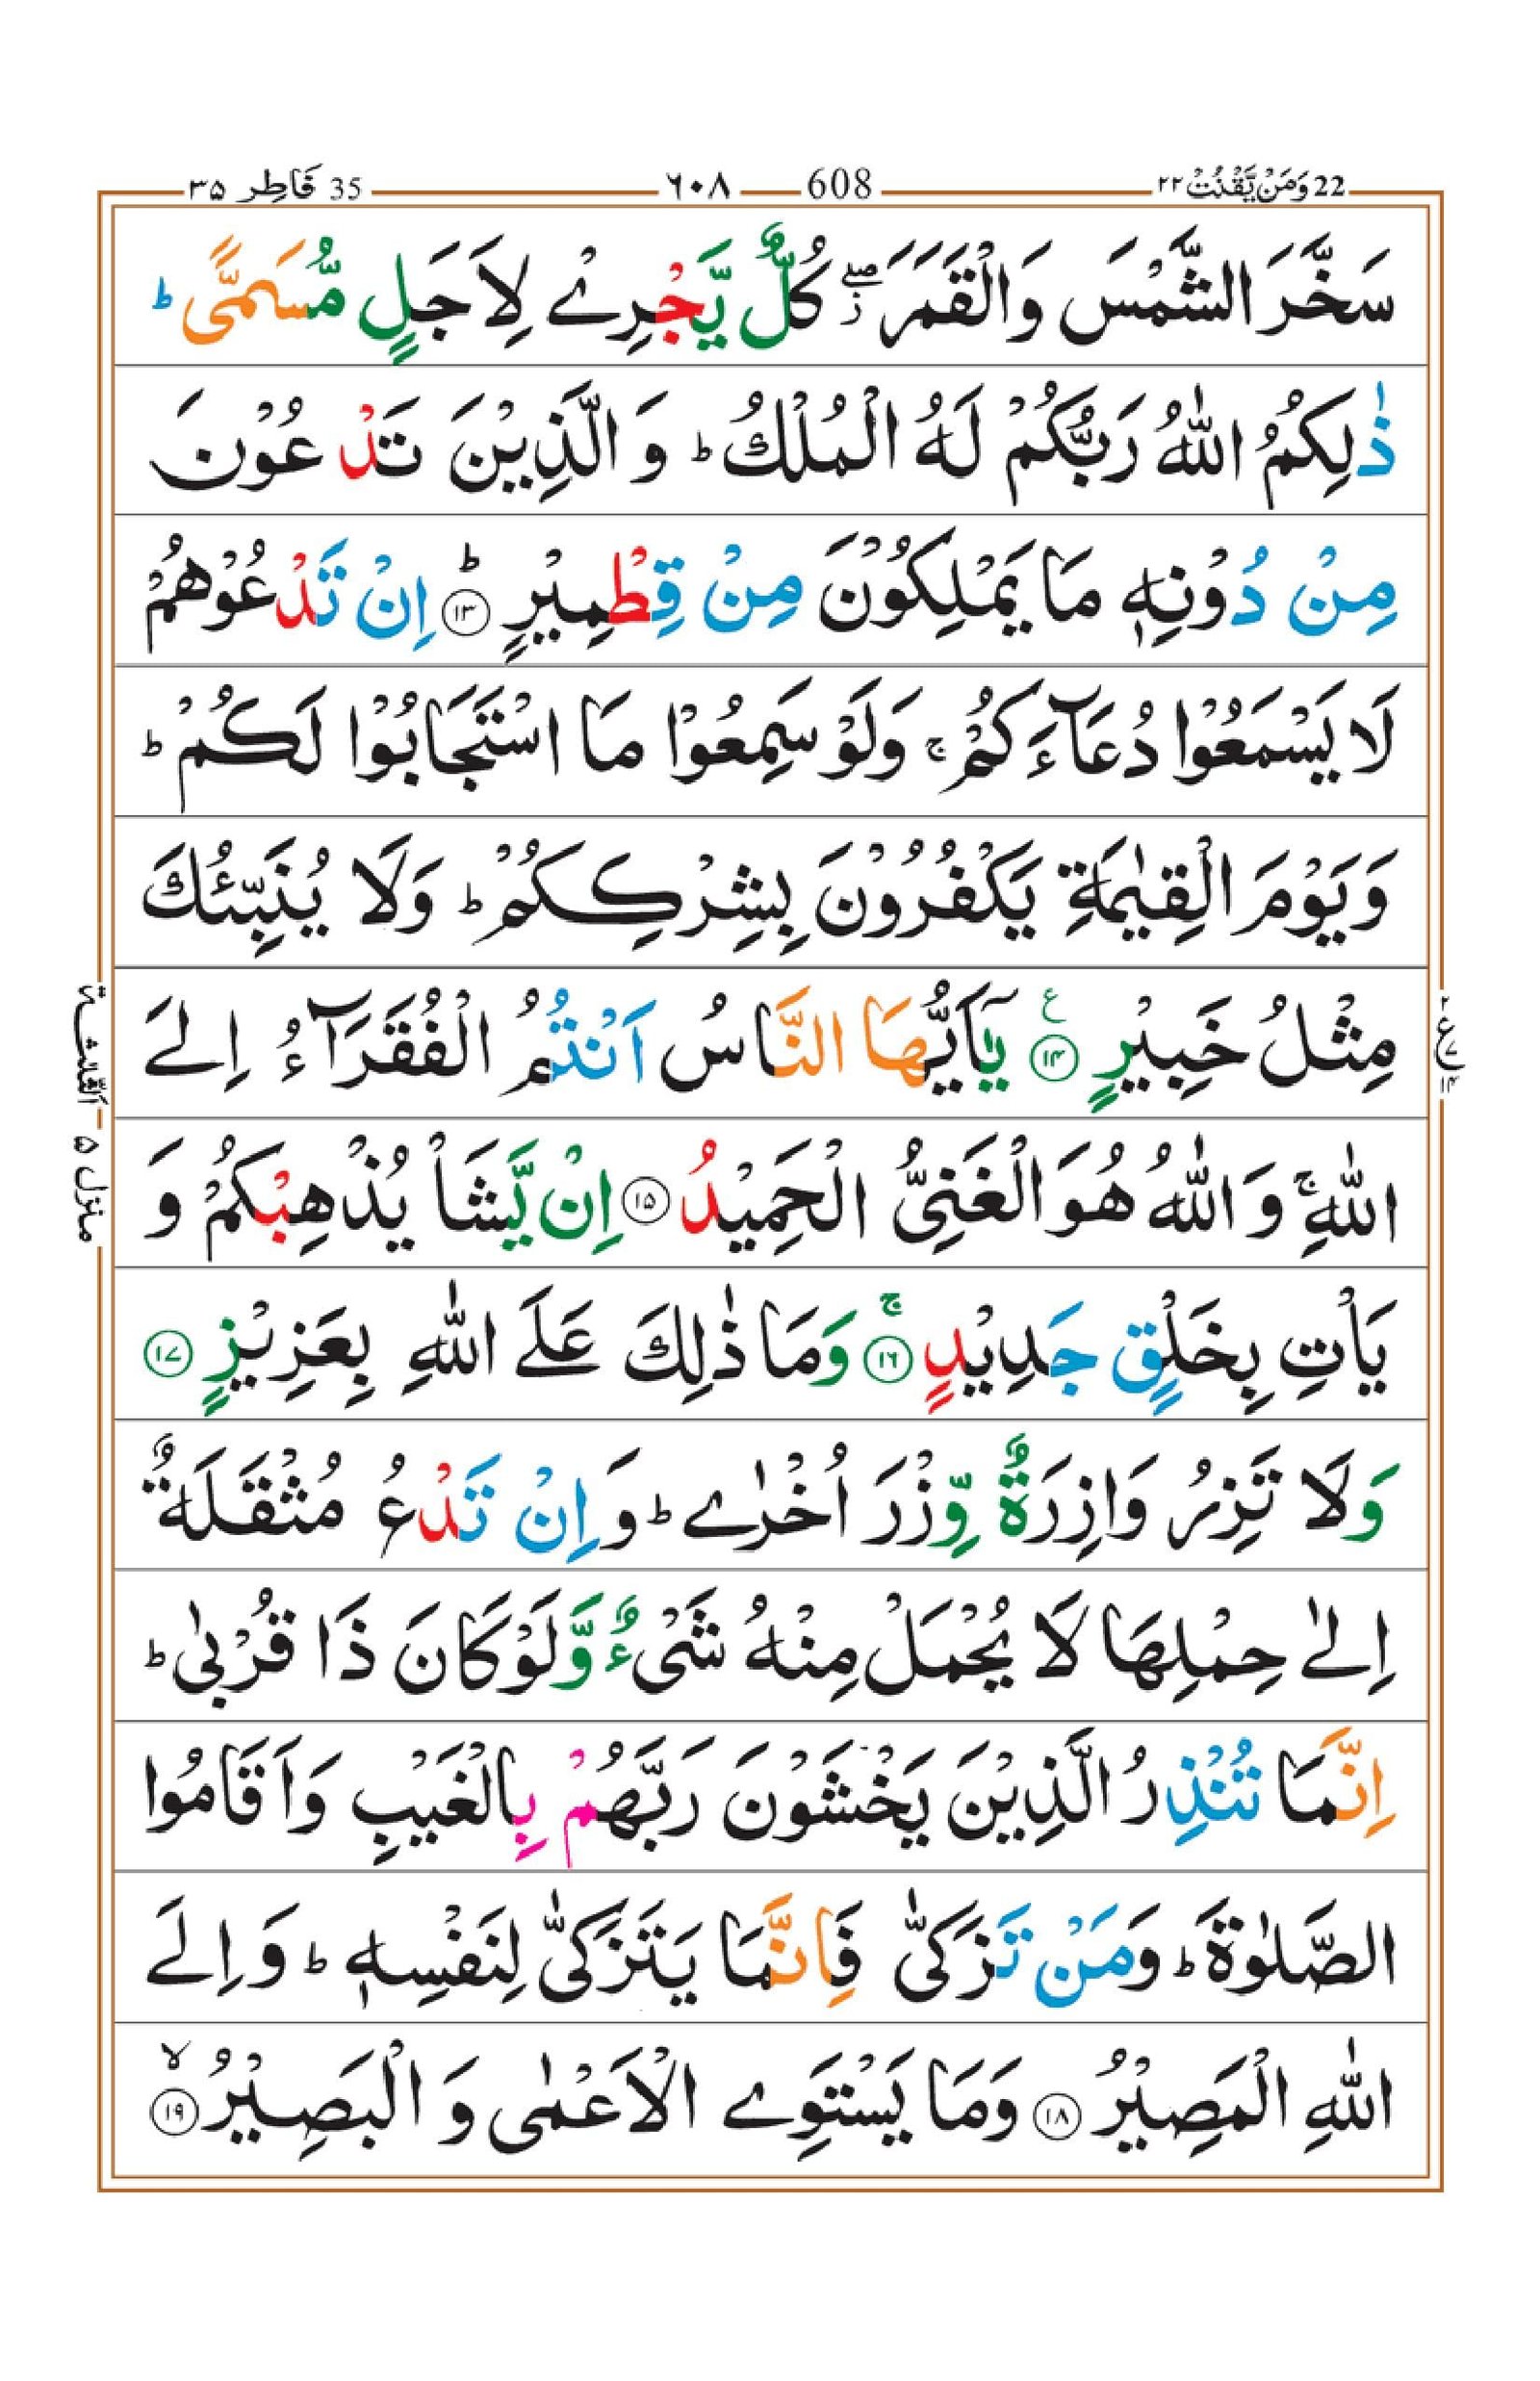 22 وَمَنْ يَّقْنُتْ ٢٢ 608 ٦٠٨ 35 فَاطِر ٣٥
سَخَّرَ الشَّمْسَ وَالْقَمَرَ ۖ٘ كُلٌّ يَّجْرِيْ لِاَجَلٍ مُّسَمًّى ؕ
ذٰلِكُمُ اللّٰهُ رَبُّكُمْ لَهُ الْمُلْكُ ؕ وَ الَّذِيْنَ تَدْعُوْنَ
مِنْ دُوْنِهٖ مَا يَمْلِكُوْنَ مِنْ قِطْمِيْرٍ ؕ ۱۳ اِنْ تَدْعُوْهُمْ
لَا يَسْمَعُوْا دُعَآءَكُمْ ۚ وَلَوْ سَمِعُوْا مَا اسْتَجَابُوْا لَكُمْ ؕ
وَيَوْمَ الْقِيٰمَةِ يَكْفُرُوْنَ بِشِرْكِكُمْ ؕ وَلَا يُنَبِّئُكَ
مِثْلُ خَبِيْرٍ ۱۴ ع يٰۤاَيُّهَا النَّاسُ اَنْتُمُ الْفُقَرَآءُ اِلَى
اللّٰهِ ۚ وَ اللّٰهُ هُوَ الْغَنِيُّ الْحَمِيْدُ ۱۵ اِنْ يَّشَاْ يُذْهِبْكُمْ وَ
يَاْتِ بِخَلْقٍ جَدِيْدٍ ۚ ۱۶ وَمَا ذٰلِكَ عَلَى اللّٰهِ بِعَزِيْزٍ ۱۷
وَلَا تَزِرُ وَازِرَةٌ وِّزْرَ اُخْرٰى ؕ وَ اِنْ تَدْعُ مُثْقَلَةٌ
اِلٰى حِمْلِهَا لَا يُحْمَلْ مِنْهُ شَيْءٌ وَّلَوْ كَانَ ذَا قُرْبٰى ؕ
اِنَّمَا تُنْذِرُ الَّذِيْنَ يَخْشَوْنَ رَبَّهُمْ بِالْغَيْبِ وَاَقَامُوا
الصَّلٰوةَ ؕ وَمَنْ تَزَكّٰى فَاِنَّمَا يَتَزَكّٰى لِنَفْسِهٖ ؕ وَ اِلَى
اللّٰهِ الْمَصِيْرُ ۱۸ وَمَا يَسْتَوِي الْاَعْمٰى وَ الْبَصِيْرُ ۙ ۱۹
٢ ع ٧ ١٤
منزل ۵ اَلثّٰلثة